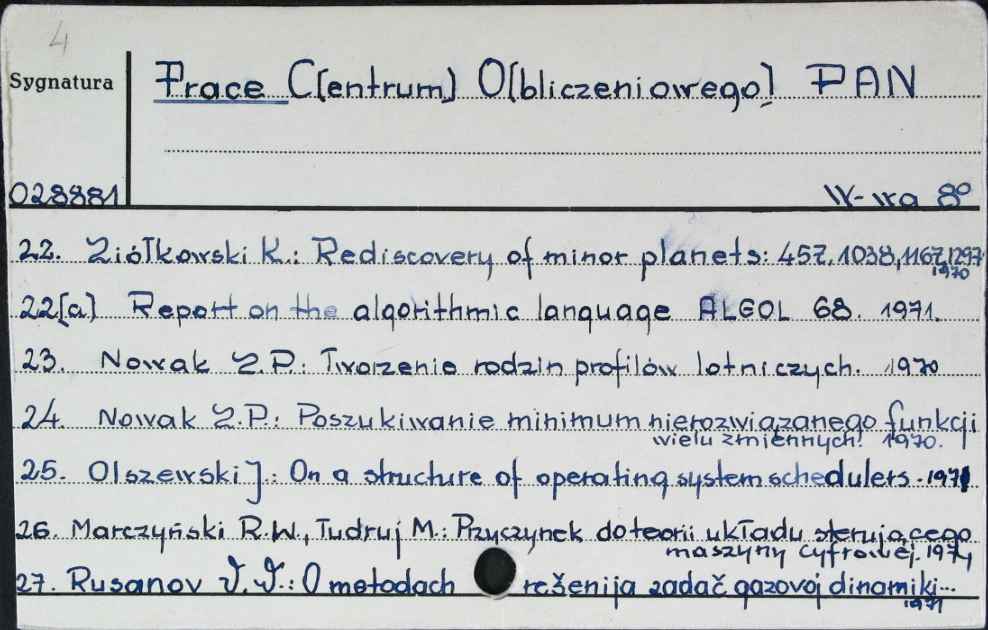 4
Sygnatura
Prace C[entrum] O[bliczeniowego] PAN
028881
W-wa 8°
22. Ziółkowski K.: Rediscovery of minor planets: 457, 1038, 1167, 1297
1970
22[a] Report on the algorithmic language ALGOL 68. 1971.
23. Nowak Z.P.: Tworzenie rodzin profilów lotniczych. 1970
24. Nowak Z.P.: Poszukiwanie minimum nierozwiązanego funkcji
wielu zmiennych. 1970.
25. Olszewski J.: On a structure of operating system schedulers. 1971
26. Marczyński R.W., Tudruj M.: Przyczynek do teorii układu sterującego
maszyny cyfrowej. 1971
27. Rusanov V.V.: O metodach rešenija zadač gazovoj dinamiki...
1971